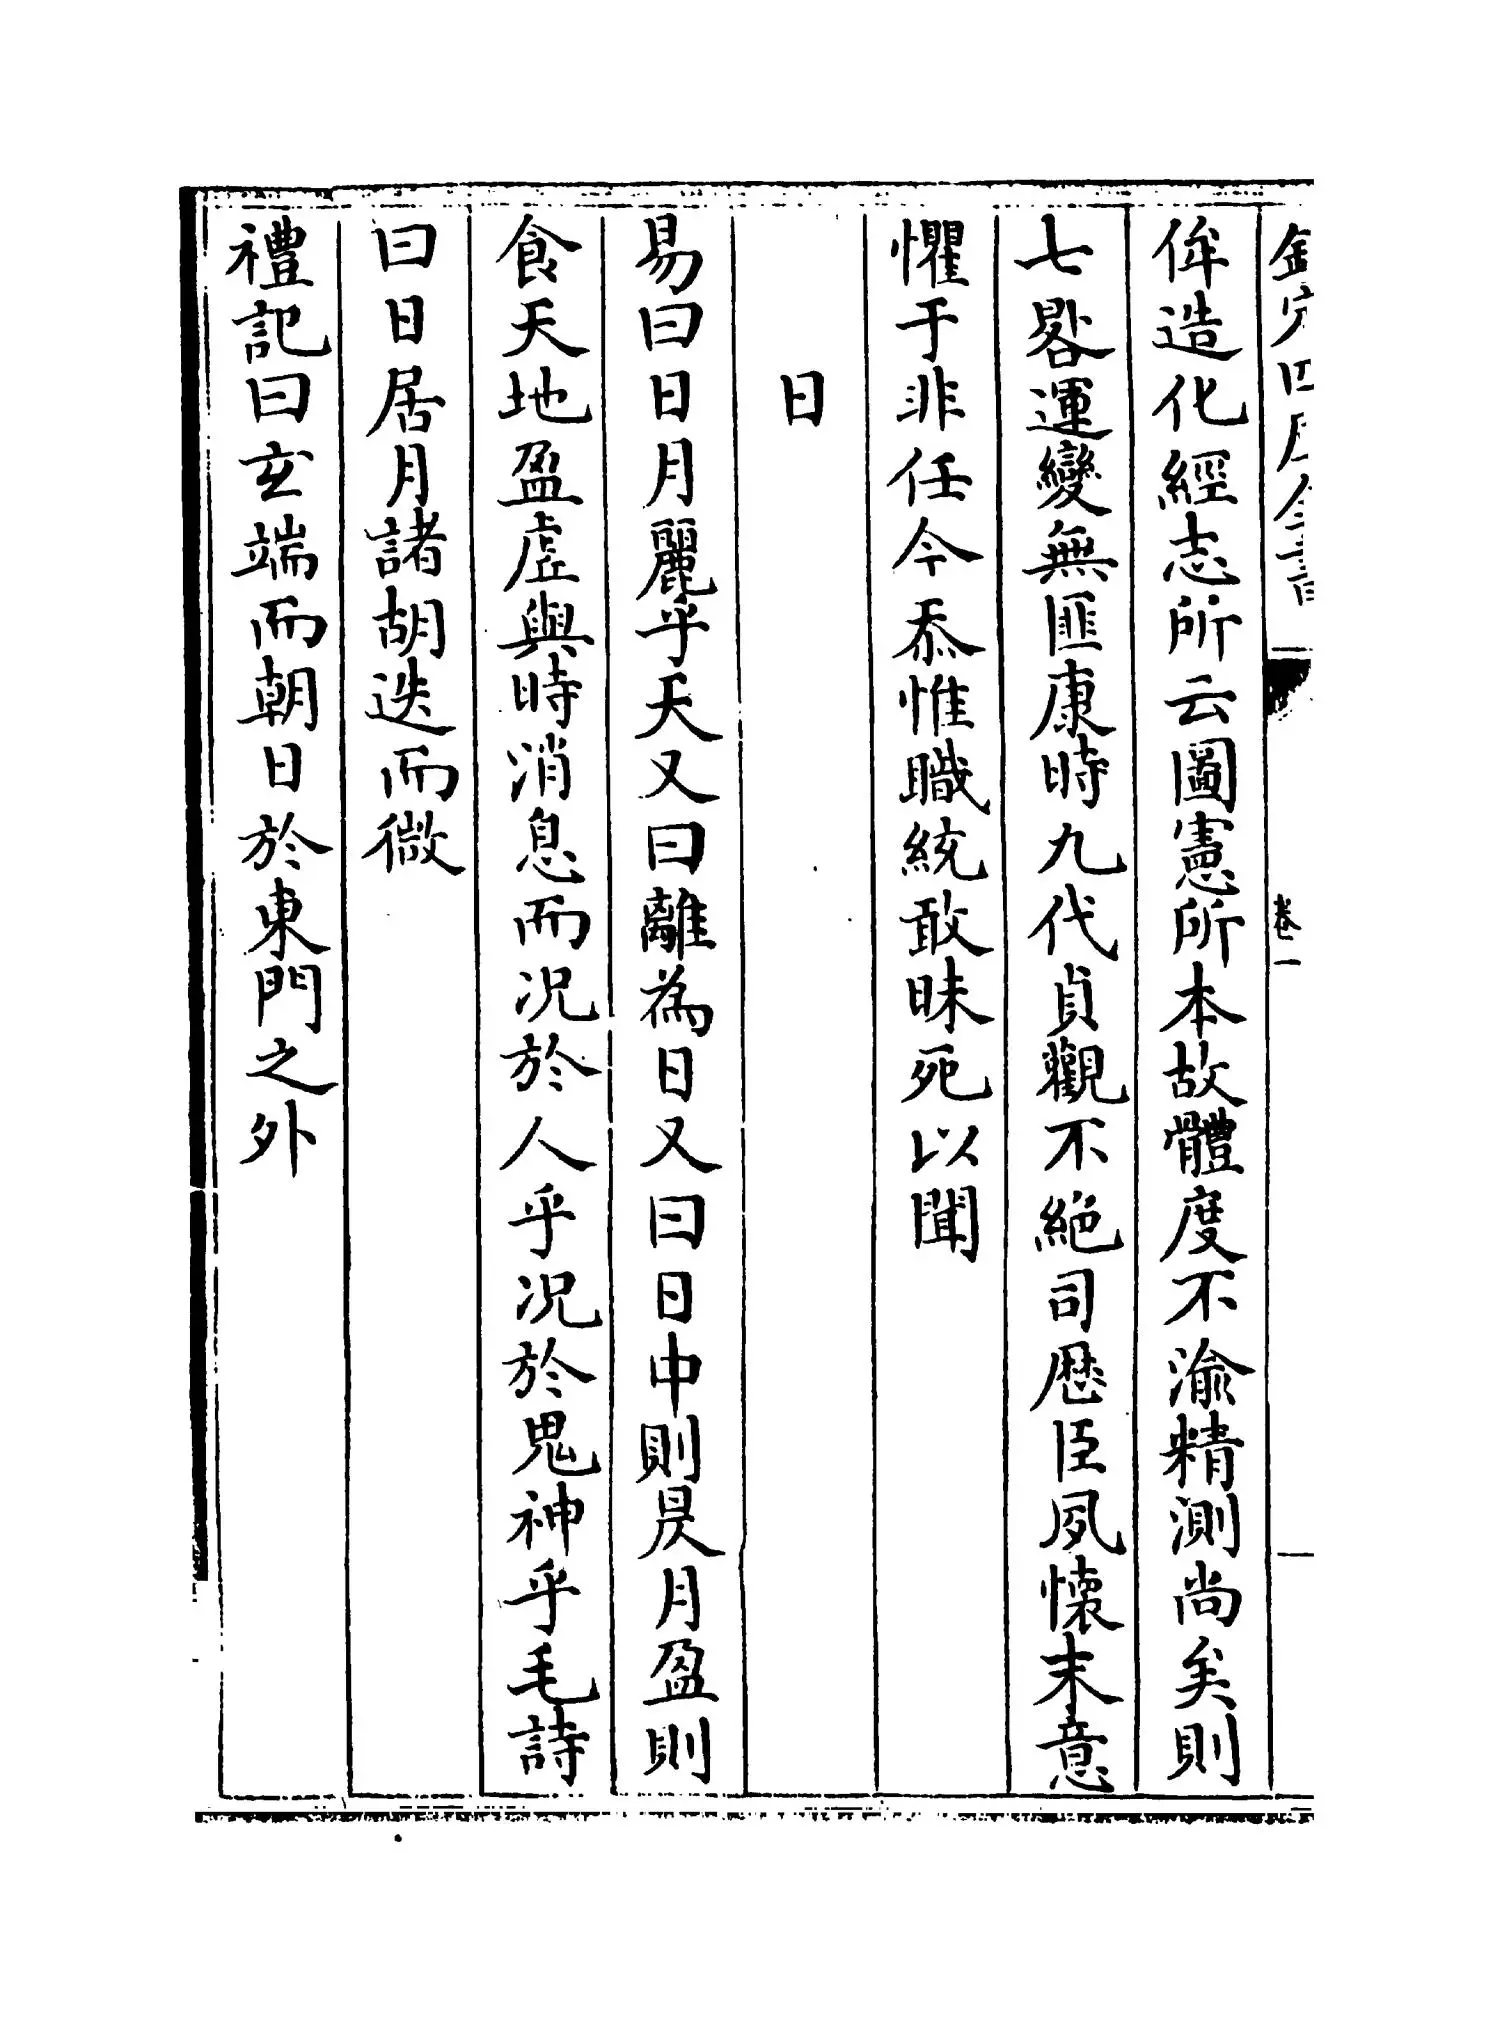 欽定四庫全書
卷一
侔造化經志所云圖憲所本故體度不渝精測尚矣則
七畧運變無匪康時九代貞觀不絶司歴臣夙懐末意
懼于非任今忝惟職統敢昧死以聞
日
易曰日月麗乎天又曰離為日又曰日中則昃月盈則
食天地盈虚與時消息而况於人乎况於鬼神乎毛詩
曰日居月諸胡迭而微
禮記曰玄端而朝日於東門之外